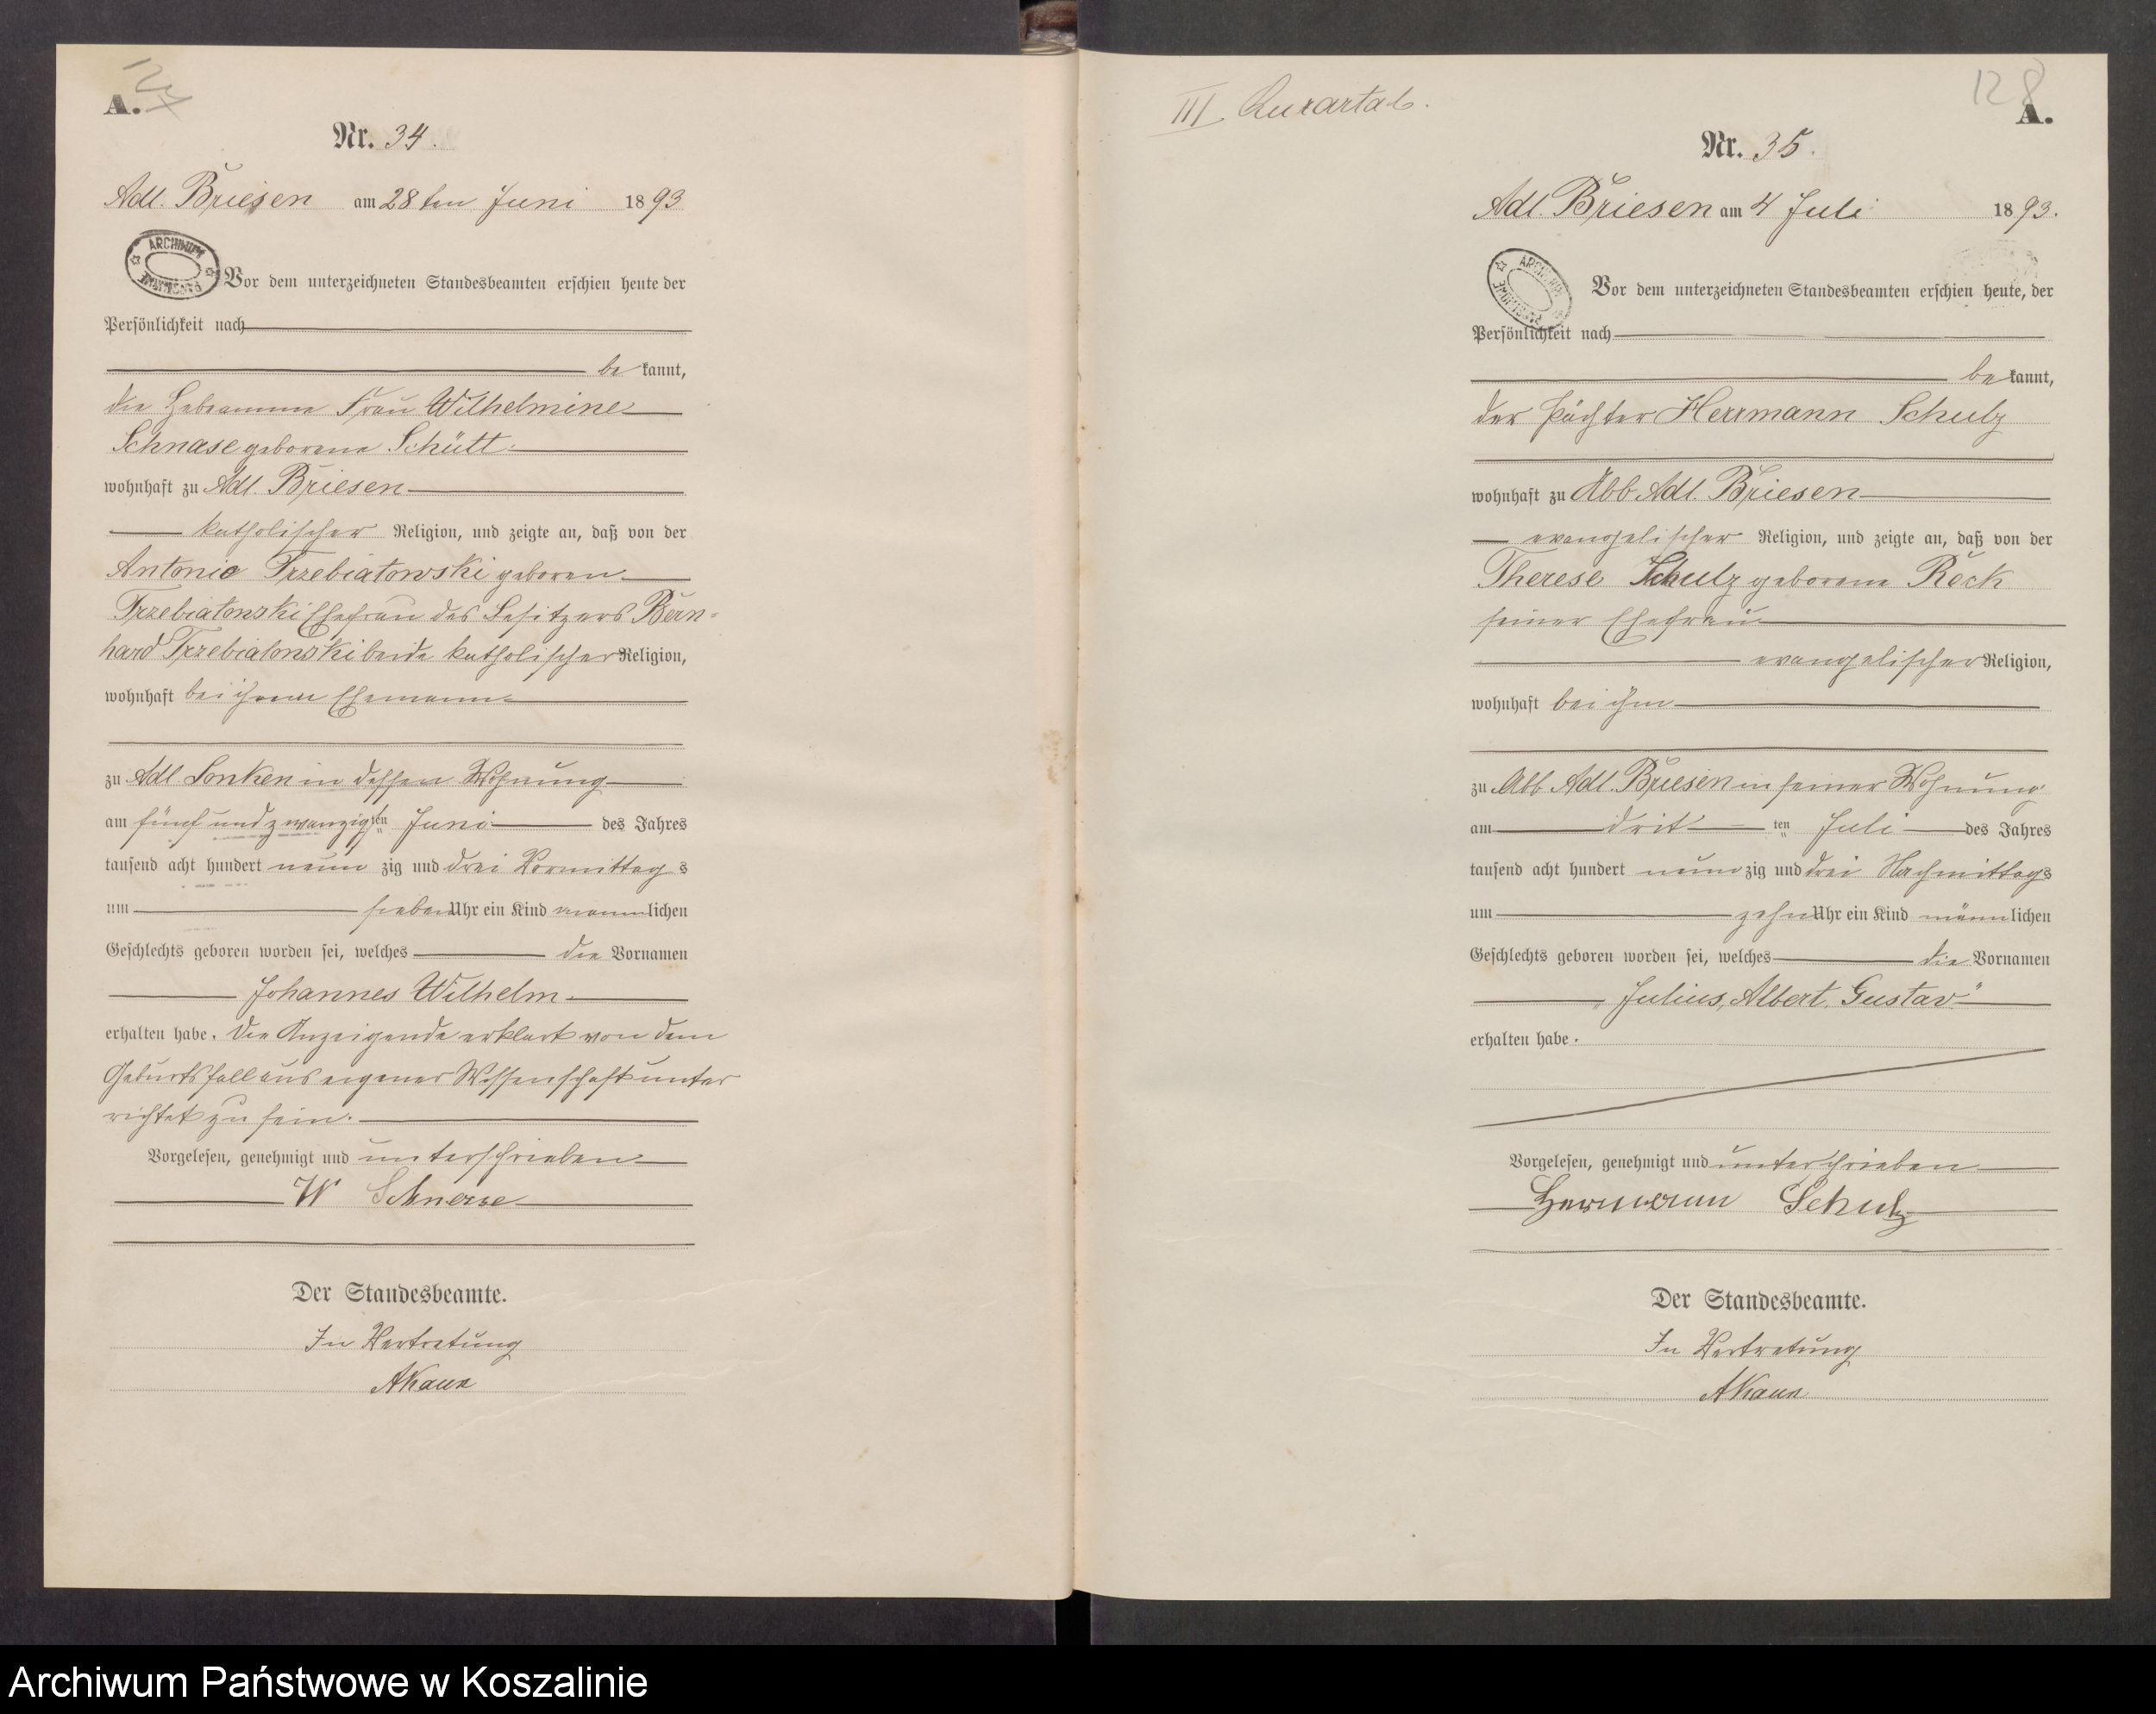 A.
Nr. 34.
Adl. Briesen am 28ten Juni 1893
ARCHIWUM
Vor dem unterzeichneten Standesbeamten erschien heute der
Persönlichkeit nach
bekannt,
die Hebeamme Frau Wilhelmine
Schnase geborene Schütt.
wohnhaft zu Adl. Briesen
katholischer Religion, und zeigte an, daß von der
Antonie Trzebiatowski geboren
Trzebiatowski Ehefrau des Besitzers Bern-
hard Trzebiatowski beide katholischer Religion,
wohnhaft bei ihrem Ehemanne
zu Adl. Sonken in dessen Wohnung
am fünf und zwanzigsten Juni des Jahres
tausend acht hundert neun zig und drei Vormittags
um sieben Uhr ein Kind mannlichen
Geschlechts geboren worden sei, welches die Vornamen
Johannes Wilhelm
erhalten habe. Die Anzeigende erklärt von dem
Geburtsfall aus eigener Wissenschaft unter
richtet zu sein.
Vorgelesen, genehmigt und unterschrieben
W Schnase
Der Standesbeamte.
In Vertretung
III Quartal.
128
A.
Nr. 35.
Adl. Briesen am 4 Juli 1893.
ARCHIWUM
Vor dem unterzeichneten Standesbeamten erschien heute, der
Persönlichkeit nach
bekannt,
der Pächter Herrmann Schulz
wohnhaft zu Abb Adl. Briesen
evangelischer Religion, und zeigte an, daß von der
Therese Schulz geborene Reck
seiner Ehefrau
evangelischer Religion,
wohnhaft bei ihm
zu Abb Adl. Briesen in seiner Wohnung
am dritten Juli des Jahres
tausend acht hundert neun zig und drei Nachmittags
um zehn Uhr ein Kind männlichen
Geschlechts geboren worden sei, welches die Vornamen
„Julius, Albert, Gustav"
erhalten habe.
Vorgelesen, genehmigt und unterschrieben
Hermann Schulz
Der Standesbeamte.
In Vertretung
Archiwum Państwowe w Koszalinie